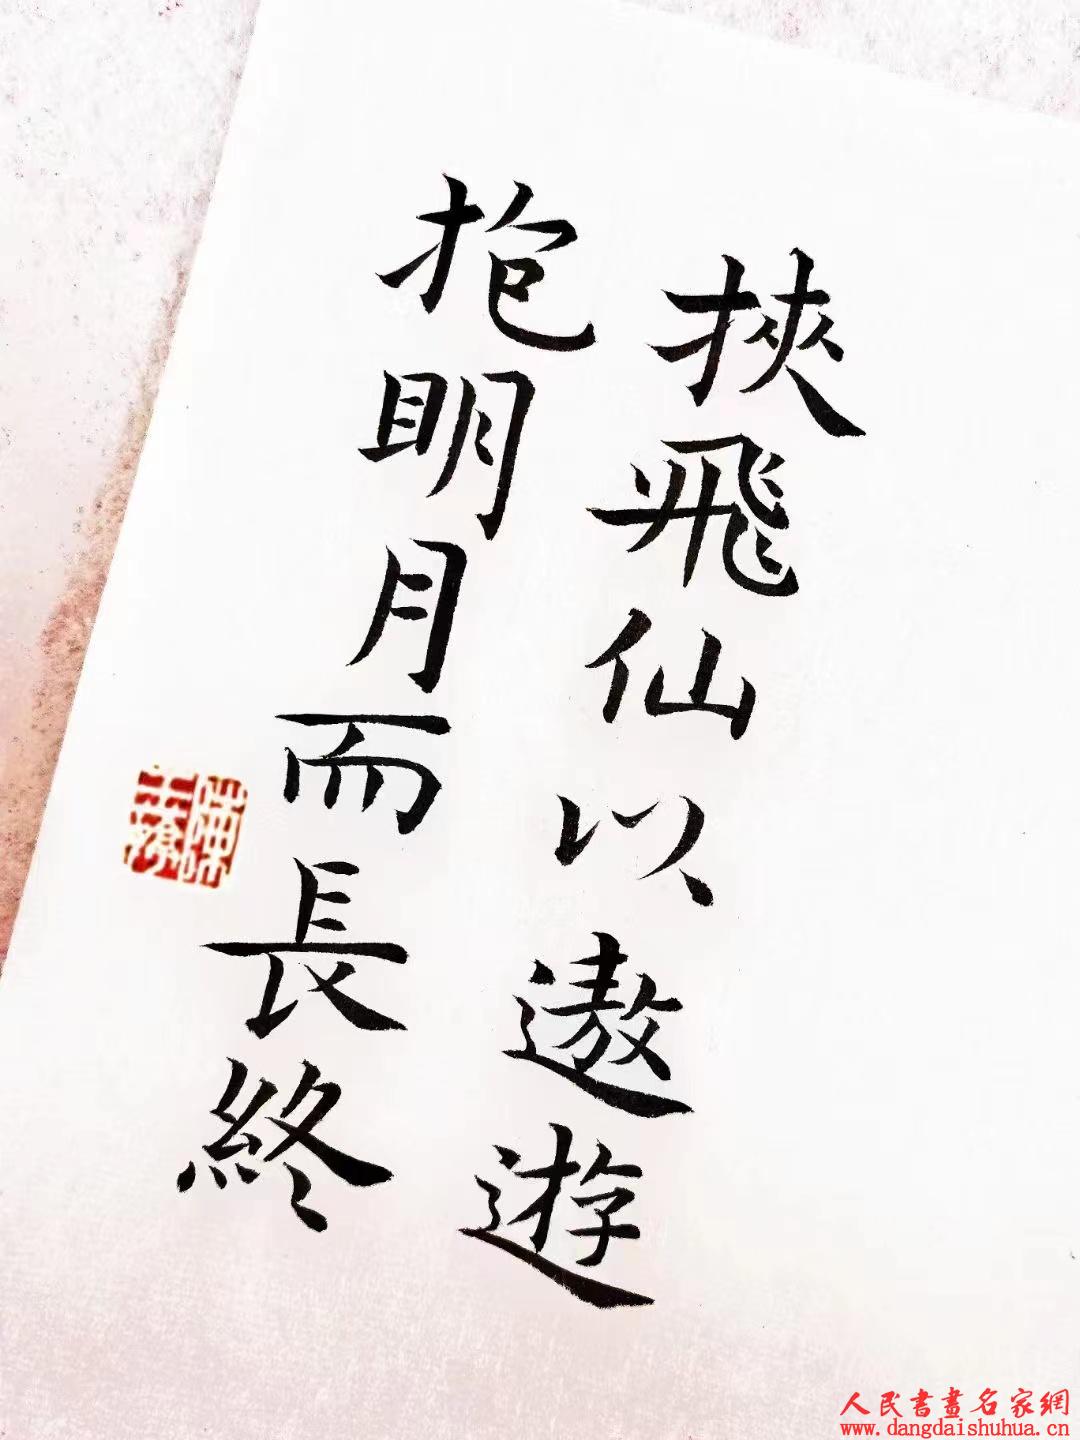 挾飛仙以遨遊
抱明月而長終
人民書畫名家網
www.dangdaishuhua.cn